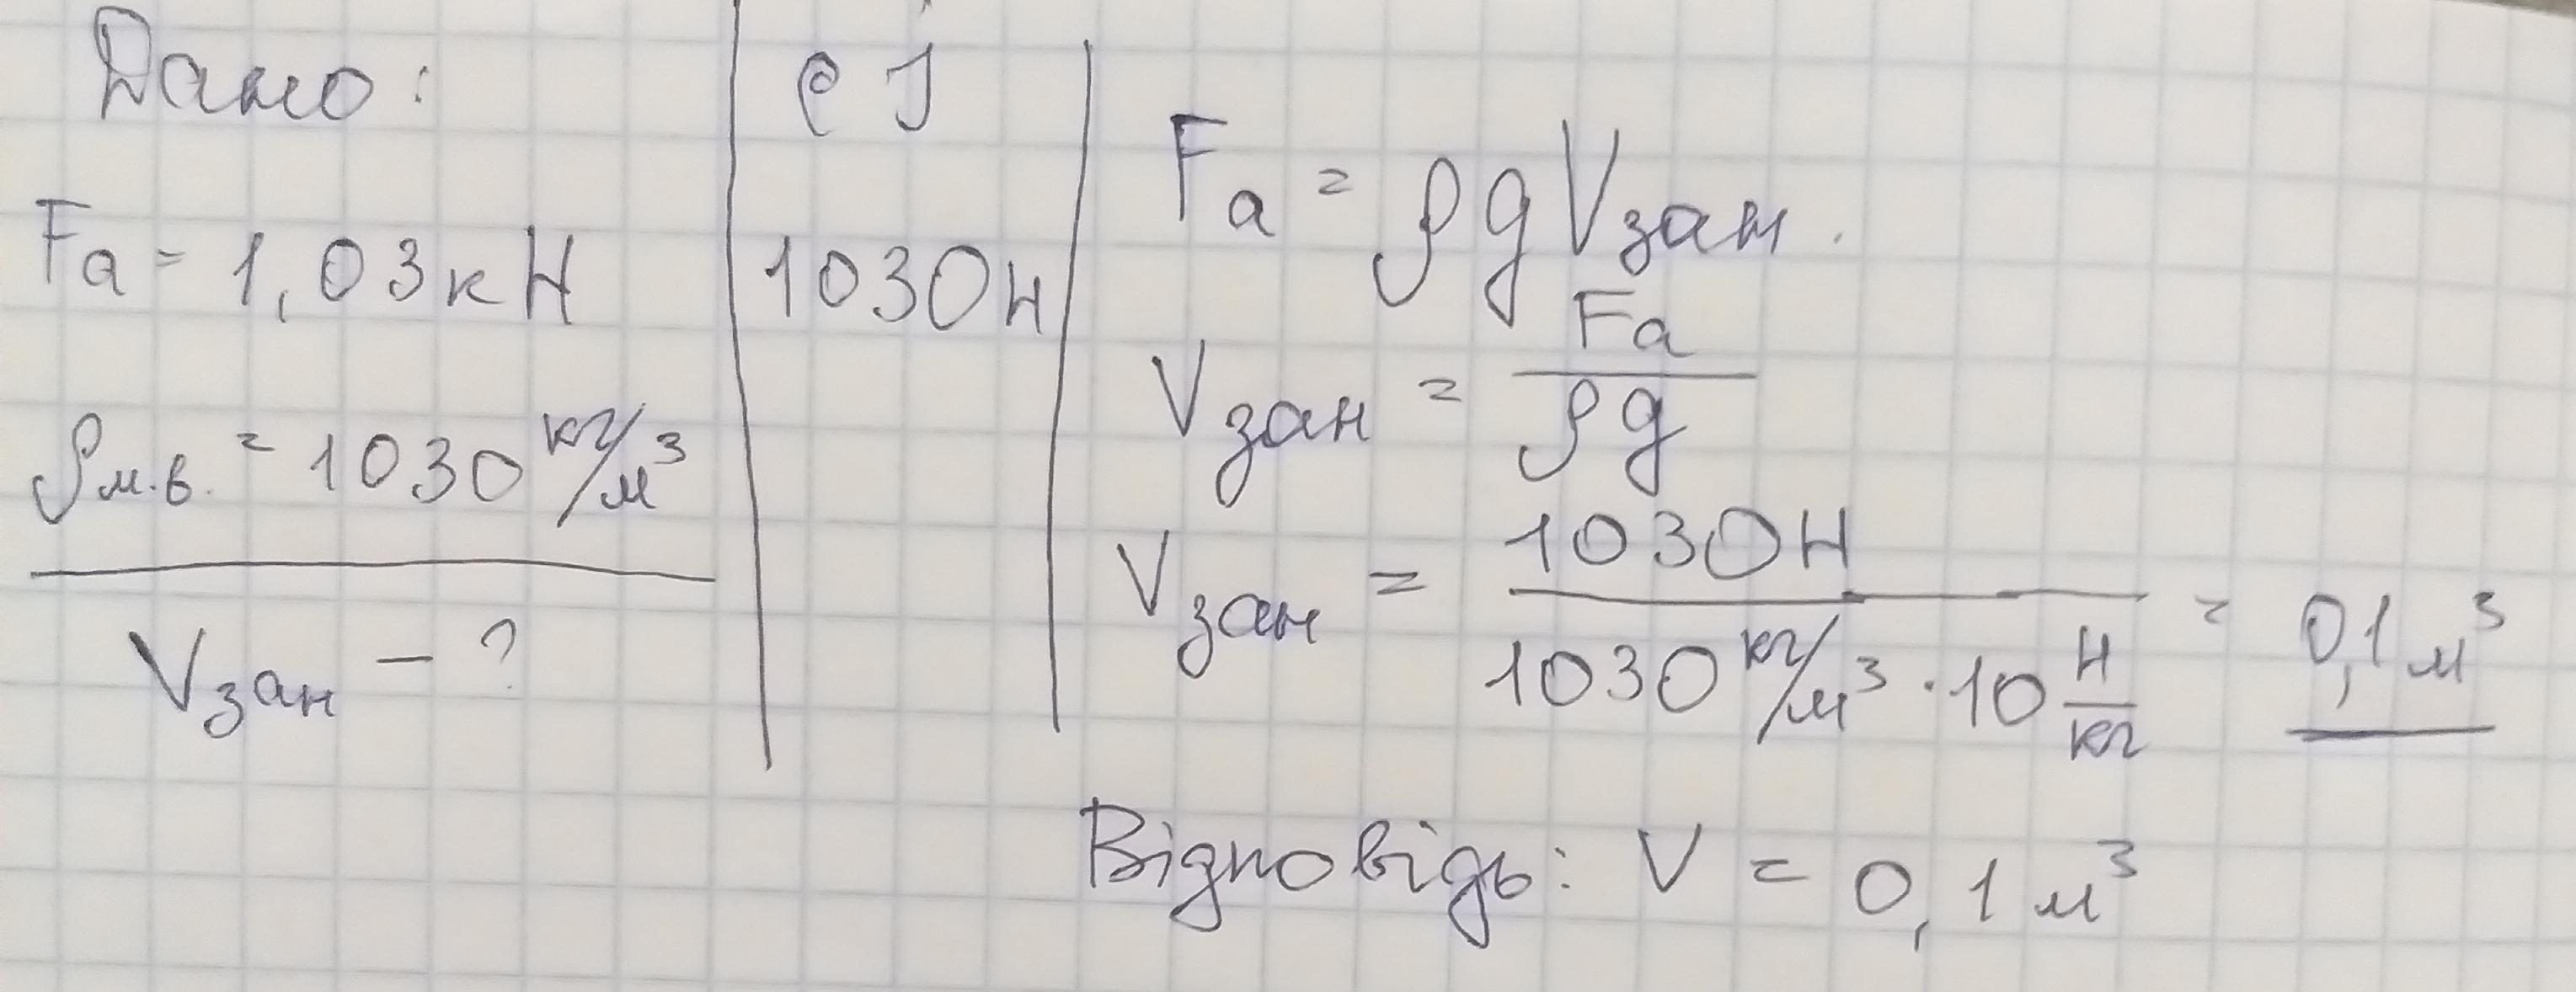 Дано:
Fа = 1,03кН
ρм.в. = 1030 кг/м³
Vзан - ?
СІ
1030н
Fа = ρgVзан.
Vзан = Fа/ρg
Vзан = 1030Н / 1030 кг/м³ · 10 Н/кг = 0,1м³
Відповідь: V = 0,1м³